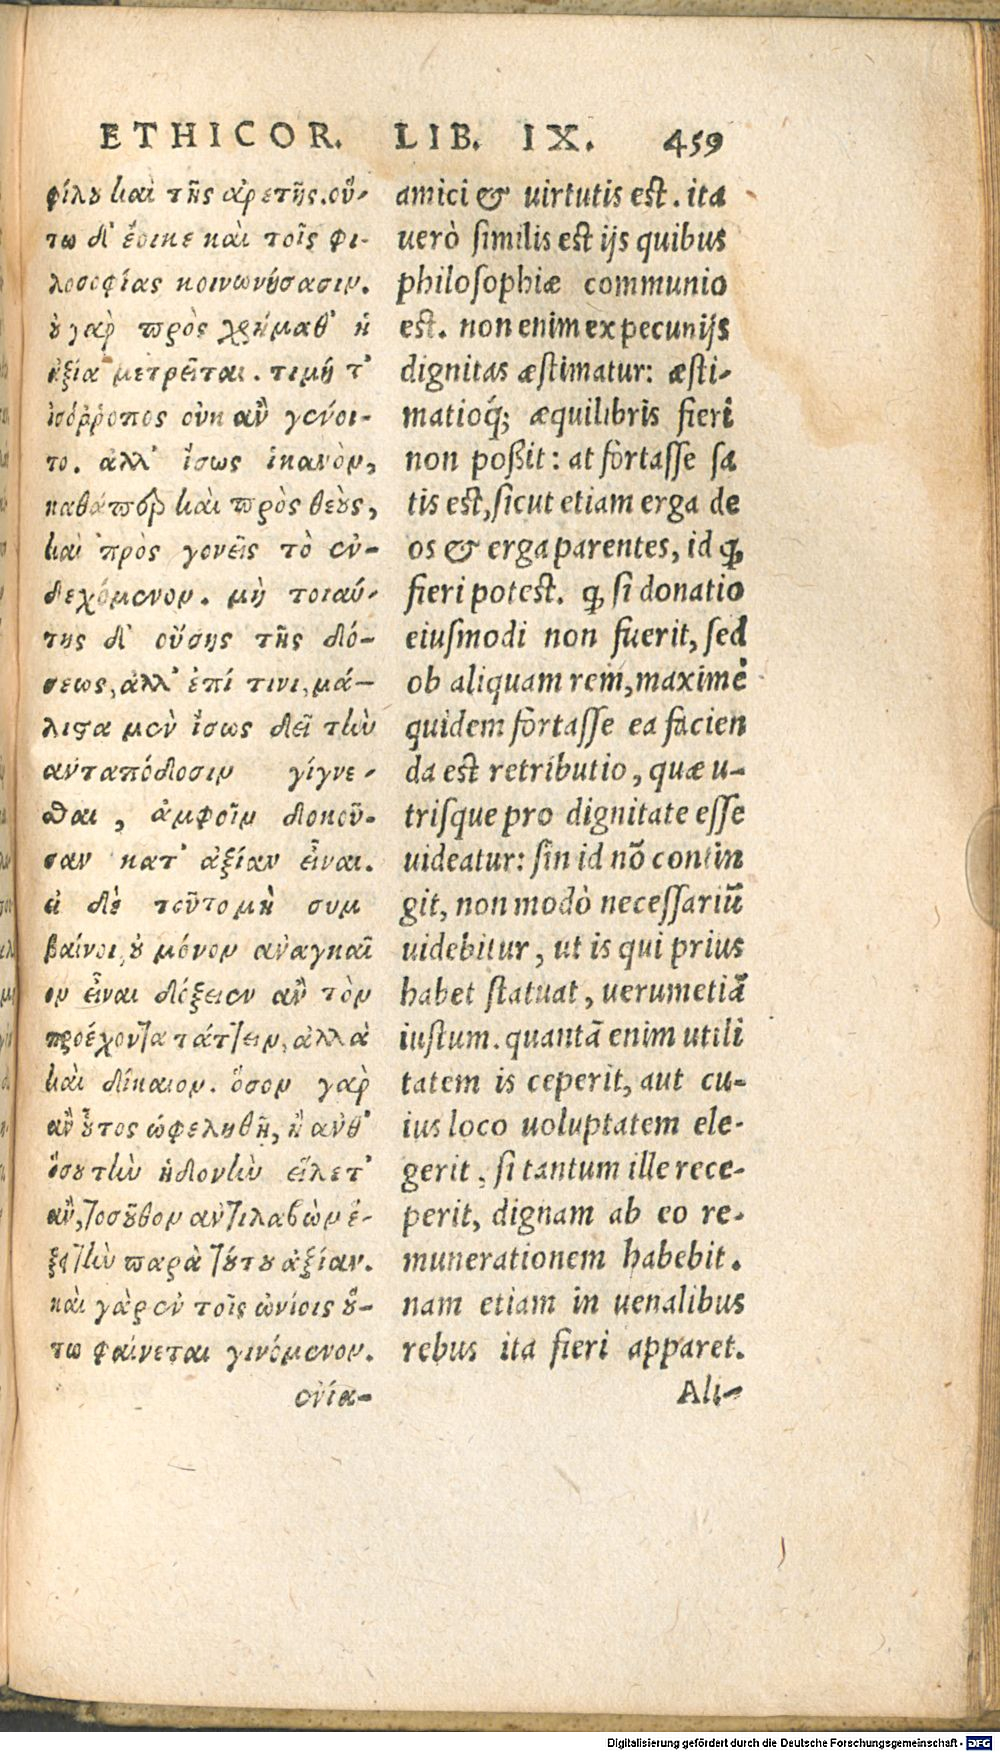 ETHICOR. LIB. IX. 459
φίλου καὶ τῆς ἀρετῆς. οὕ-
τω δ' ἔοικε καὶ τοῖς φι-
λοσοφίας κοινωνήσασιν.
οὐ γὰρ πρὸς χρήμαθ' ἡ
ἀξία μετρεῖται. τιμή τ'
ἰσόῤῥοπος οὐκ ἂν γένοι-
το. ἀλλ' ἴσως ἱκανὸν,
καθάπερ καὶ πρὸς θεοὺς,
καὶ πρὸς γονεῖς τὸ ἐν-
δεχόμενον. μὴ τοιαύ-
της δ' οὔσης τῆς δό-
σεως, ἀλλ' ἐπί τινι, μά-
λιστα μὲν ἴσως δεῖ τὴν
ἀνταπόδοσιν γίγνε-
σθαι, ἀμφοῖν δοκοῦ-
σαν κατ' ἀξίαν εἶναι.
εἰ δὲ τοῦτο μὴ συμ
βαίνοι, οὐ μόνον ἀναγκαῖ
ον εἶναι δόξειεν ἂν τὸν
προέχοντα τάττειν, ἀλλὰ
καὶ δίκαιον. ὅσον γὰρ
ἂν οὗτος ὠφεληθῇ, ἢ ἀνθ'
ὅσου τὴν ἡδονὴν εἵλετ'
ἂν, τοσοῦθον ἀντιλαβὼν ἕ-
ξει τὴν παρὰ τούτου ἀξίαν.
καὶ γὰρ ἐν τοῖς ὠνίοις οὕ-
τω φαίνεται γινόμενον.
ἐνία-
amici & uirtutis est. ita
uerò similis est ijs quibus
philosophiæ communio
est. non enim ex pecunijs
dignitas æstimatur: æsti-
matioq́; æquilibris fieri
non poßit: at fortasse sa
tis est, sicut etiam erga de
os & erga parentes, id ꝙ
fieri potest. ꝙ si donatio
eiusmodi non fuerit, sed
ob aliquam rem, maximè
quidem fortasse ea facien
da est retributio, quæ u-
trisque pro dignitate esse
uideatur: sin id nō contin
git, non modò necessariū
uidebitur, ut is qui prius
habet statuat, uerumetiā
iustum. quantā enim utili
tatem is ceperit, aut cu-
ius loco uoluptatem ele-
gerit, si tantum ille rece-
perit, dignam ab eo re-
munerationem habebit.
nam etiam in uenalibus
rebus ita fieri apparet.
Ali-
Digitalisierung gefördert durch die Deutsche Forschungsgemeinschaft - DFG